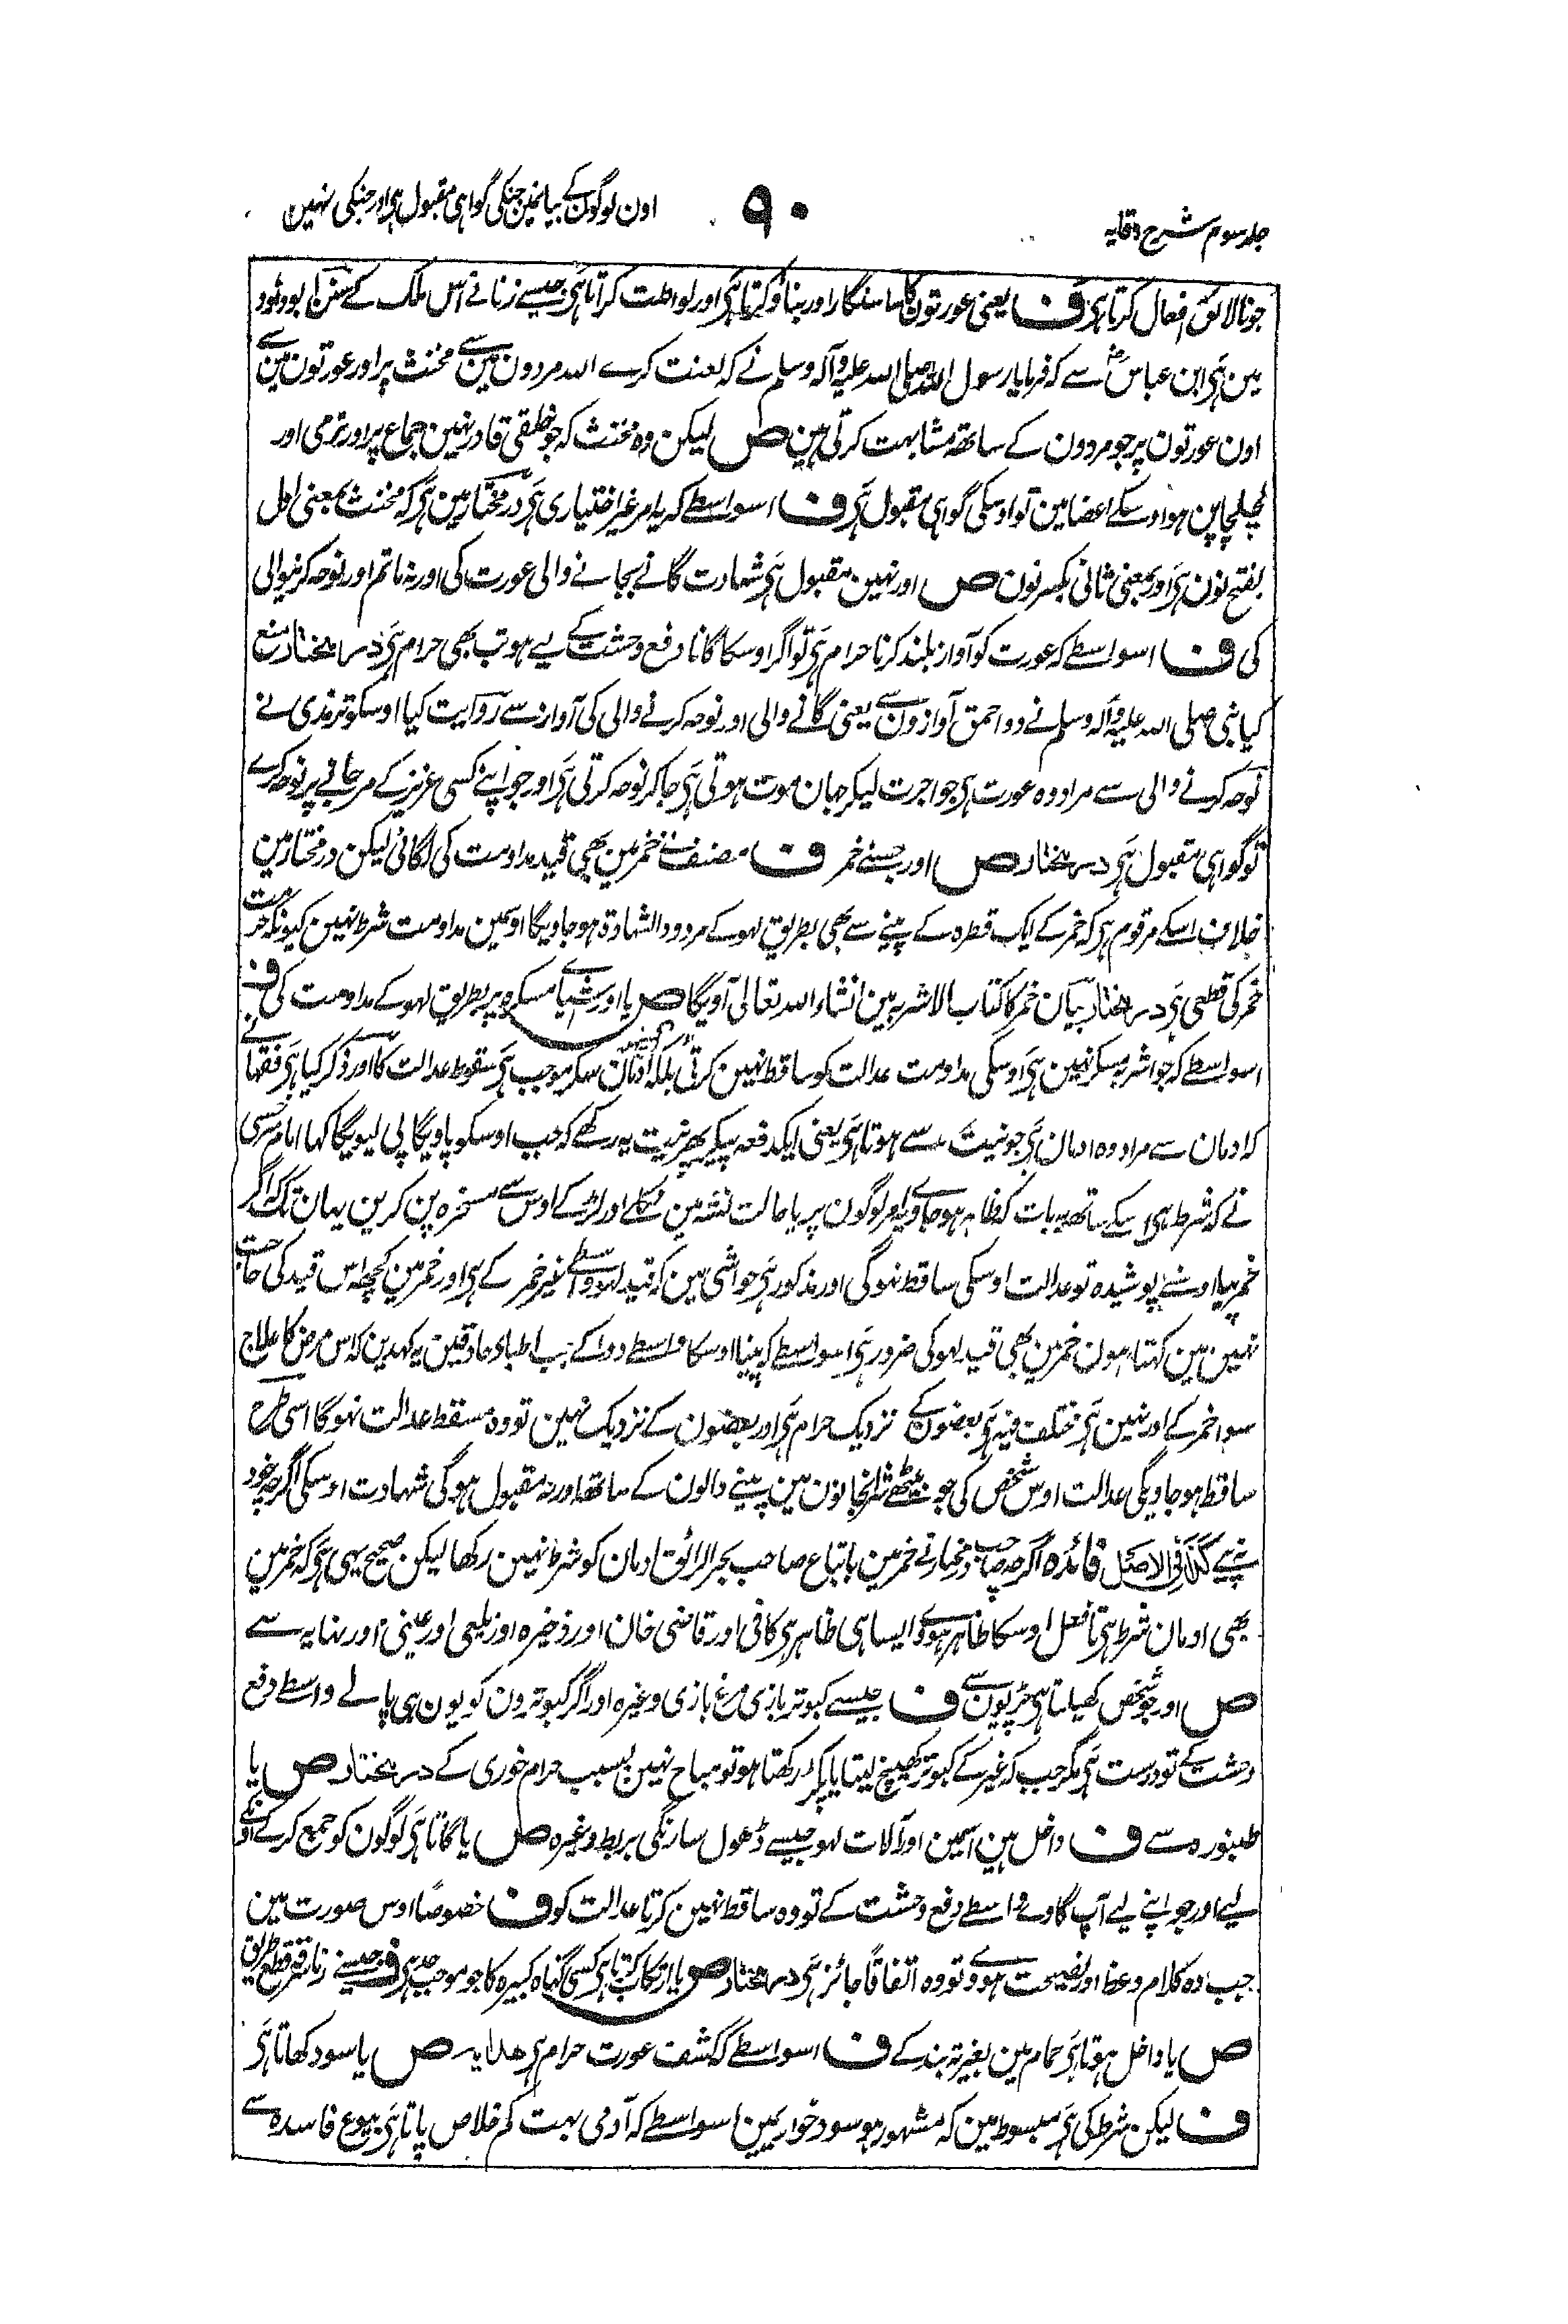 جلد سوم شرح وقایہ
۹۰
اون لوگون کے بیانمین جنکی گواہی مقبول ہی اور جنکی نہین
جو نالائق افعال کرتا ہی ف یعنی عورتون کا سا سنگار اور بناؤ کرتا ہی اور لواطت کراتا ہی جیسے زنانے اس ملک کے سنن ابو داود
مین ہی ابن عباس رض سے کہ فرمایا رسول اللہ صلی اللہ علیہ وآلہ وسلم نے کہ لعنت کرے اللہ مردون مین سے مخنث پر اور عورتون مین سے
اون عورتون پر جو مردون کے ساتھ مشابہت کرتی ہین ص لیکن وہ مخنث کہ جو خلقی قادر نہین جماع پر اور نرمی اور
لچلچاپن ہو اوسکے اعضا مین تو اوسکی گواہی مقبول ہی ف اسواسطے کہ یہ امر غیر اختیاری ہی در مختار مین ہی کہ مخنث بمعنی اول
بفتح نون ہی اور بمعنی ثانی بکسر نون ص اور نہین مقبول ہی شہادت گانے بجانے والی عورت کی اور نہ ماتم اور نوحہ کرنیوالی
کی ف اسواسطے کہ عورت کو آواز بلند کرنا حرام ہی تو اگر اوسکا گانا دفع وحشت کے لیے ہو تب بھی حرام ہی در مختار منع
کیا نبی صلی اللہ علیہ وآلہ وسلم نے دو احمق آوازون سے یعنی گانے والی اور نوحہ کرنے والی کی آواز سے روایت کیا اوسکو ترمذی نے
نوحہ کرنے والی سے مراد وہ عورت ہی جو اجرت لیکر جہان موت ہوتی ہی جا کر نوحہ کرتی ہی اور جو اپنے کسی عزیز کے مرجانے پر نوحہ کرے
تو گواہی مقبول ہی در مختار ص اور جسنے خمر ف مصنف نے خمر مین بھی قید مداومت کی لگائی لیکن در مختار مین
خلاف اسکے مرقوم ہی کہ خمر کے ایک قطرہ کے پینے سے بھی بطریق لہو کے مردود الشہادۃ ہو جاویگا اوسمین مداومت شرط نہین کیونکہ حرمت
خمر کی قطعی ہی در مختار بیان خمر کا کتاب الاشربہ مین انشاء اللہ تعالی آویگا ص یا اور اشیا مسکرہ پر بطریق لہو کے مداومت کی ف
اسواسطے کہ جو اشربہ مسکر نہین ہی اوسکی مداومت عدالت کو ساقط نہین کرتی بلکہ ادمان سکر موجب ہی سقوط عدالت کا اور ذکر کیا ہی فقہا نے
کہ ادمان سے مراد وہ ادمان ہی جو نیت سے ہوتا ہی یعنی ایکدفعہ پیکر پھر نیت یہ رکھے کہ جب اوسکو پاویگا پی لیویگا کہا امام سرخسی
نے کہ شرط ہی اسکے ساتھ یہ بات کہ ظاہر ہو جاوے یہ امر لوگون پر یا حالت نشہ مین نکلے اور لڑکے اوس سے مسخرہ پن کرین یہان تک کہ اگر
خمر پیا اوسنے پوشیدہ تو عدالت اوسکی ساقط نہوگی اور مذکور ہی حواشی مین کہ قید لہو واسطے غیر خمر کے ہی اور خمر مین کچھ اس قید کی حاجت
نہین مین کہتا ہون خمر مین بھی قید لہو کی ضرور ہی اسواسطے کہ پینا اوسکا واسطے دوا کے جب اطباء حاذقین یہ کہدین کہ اس مرض کا علاج
سوا خمر کے اور نہین ہی مختلف فیہ ہی بعضون کے نزدیک حرام ہی اور بعضون کے نزدیک نہین تو وہ مسقط عدالت نہوگا اسی طرح
ساقط ہو جاویگی عدالت اوس شخص کی جو بیٹھے شرابخانون مین پینے والون کے ساتھ اور نہ مقبول ہوگی شہادت اوسکی اگرچہ خود
نہ پیے کذا فی الاصل فائدہ اگرچہ صاحب در مختار نے خمر مین باتباع صاحب بحر الرائق ادمان کو شرط نہین رکھا لیکن صحیح یہی ہی کہ خمر مین
بھی ادمان شرط ہی تا فعل اوسکا ظاہر ہووے ایسا ہی ظاہر ہی کافی اور قاضی خان اور ذخیرہ اور زیلعی اور عینی اور نہایہ سے
ص اور جو شخص کھیلتا ہی چڑیون سے ف جیسے کبوتر بازی مرغ بازی وغیرہ اور اگر کبوترون کو یون ہی پالے واسطے دفع
وحشت کے تو درست ہی مگر جب کہ غیر کے کبوتر کھینچ لیتا یا پکڑ رکھتا ہو تو مباح نہین بسبب حرام خوری کے در مختار ص یا
طنبورہ سے ف داخل ہین اسمین اور آلات لہو جیسے ڈھول سارنگی بربط وغیرہ ص یا گاتا ہی لوگون کو جمع کر کے اونکے
لیے اور جو اپنے لیے آپ گاوے واسطے دفع وحشت کے تو وہ ساقط نہین کرتا عدالت کو ف خصوصًا اوس صورت مین
جب وہ کلام وعظ اور نصیحت ہووے تو وہ اتفاقًا جائز ہی در مختار ص یا ارتکاب کرتا ہی کسی گناہ کبیرہ کا جو موجب حد ہی ف جیسے زنا سرقہ قطع طریق
ص یا داخل ہوتا ہی حمام مین بغیر تہ بند کے ف اسواسطے کہ کشف عورت حرام ہی ھدایہ ص یا سود کھاتا ہی
ف لیکن شرط کی ہی مبسوط مین کہ مشہور ہو سود خواری مین اسواسطے کہ آدمی بہت کم خلاص پاتا ہی بیوع فاسدہ سے